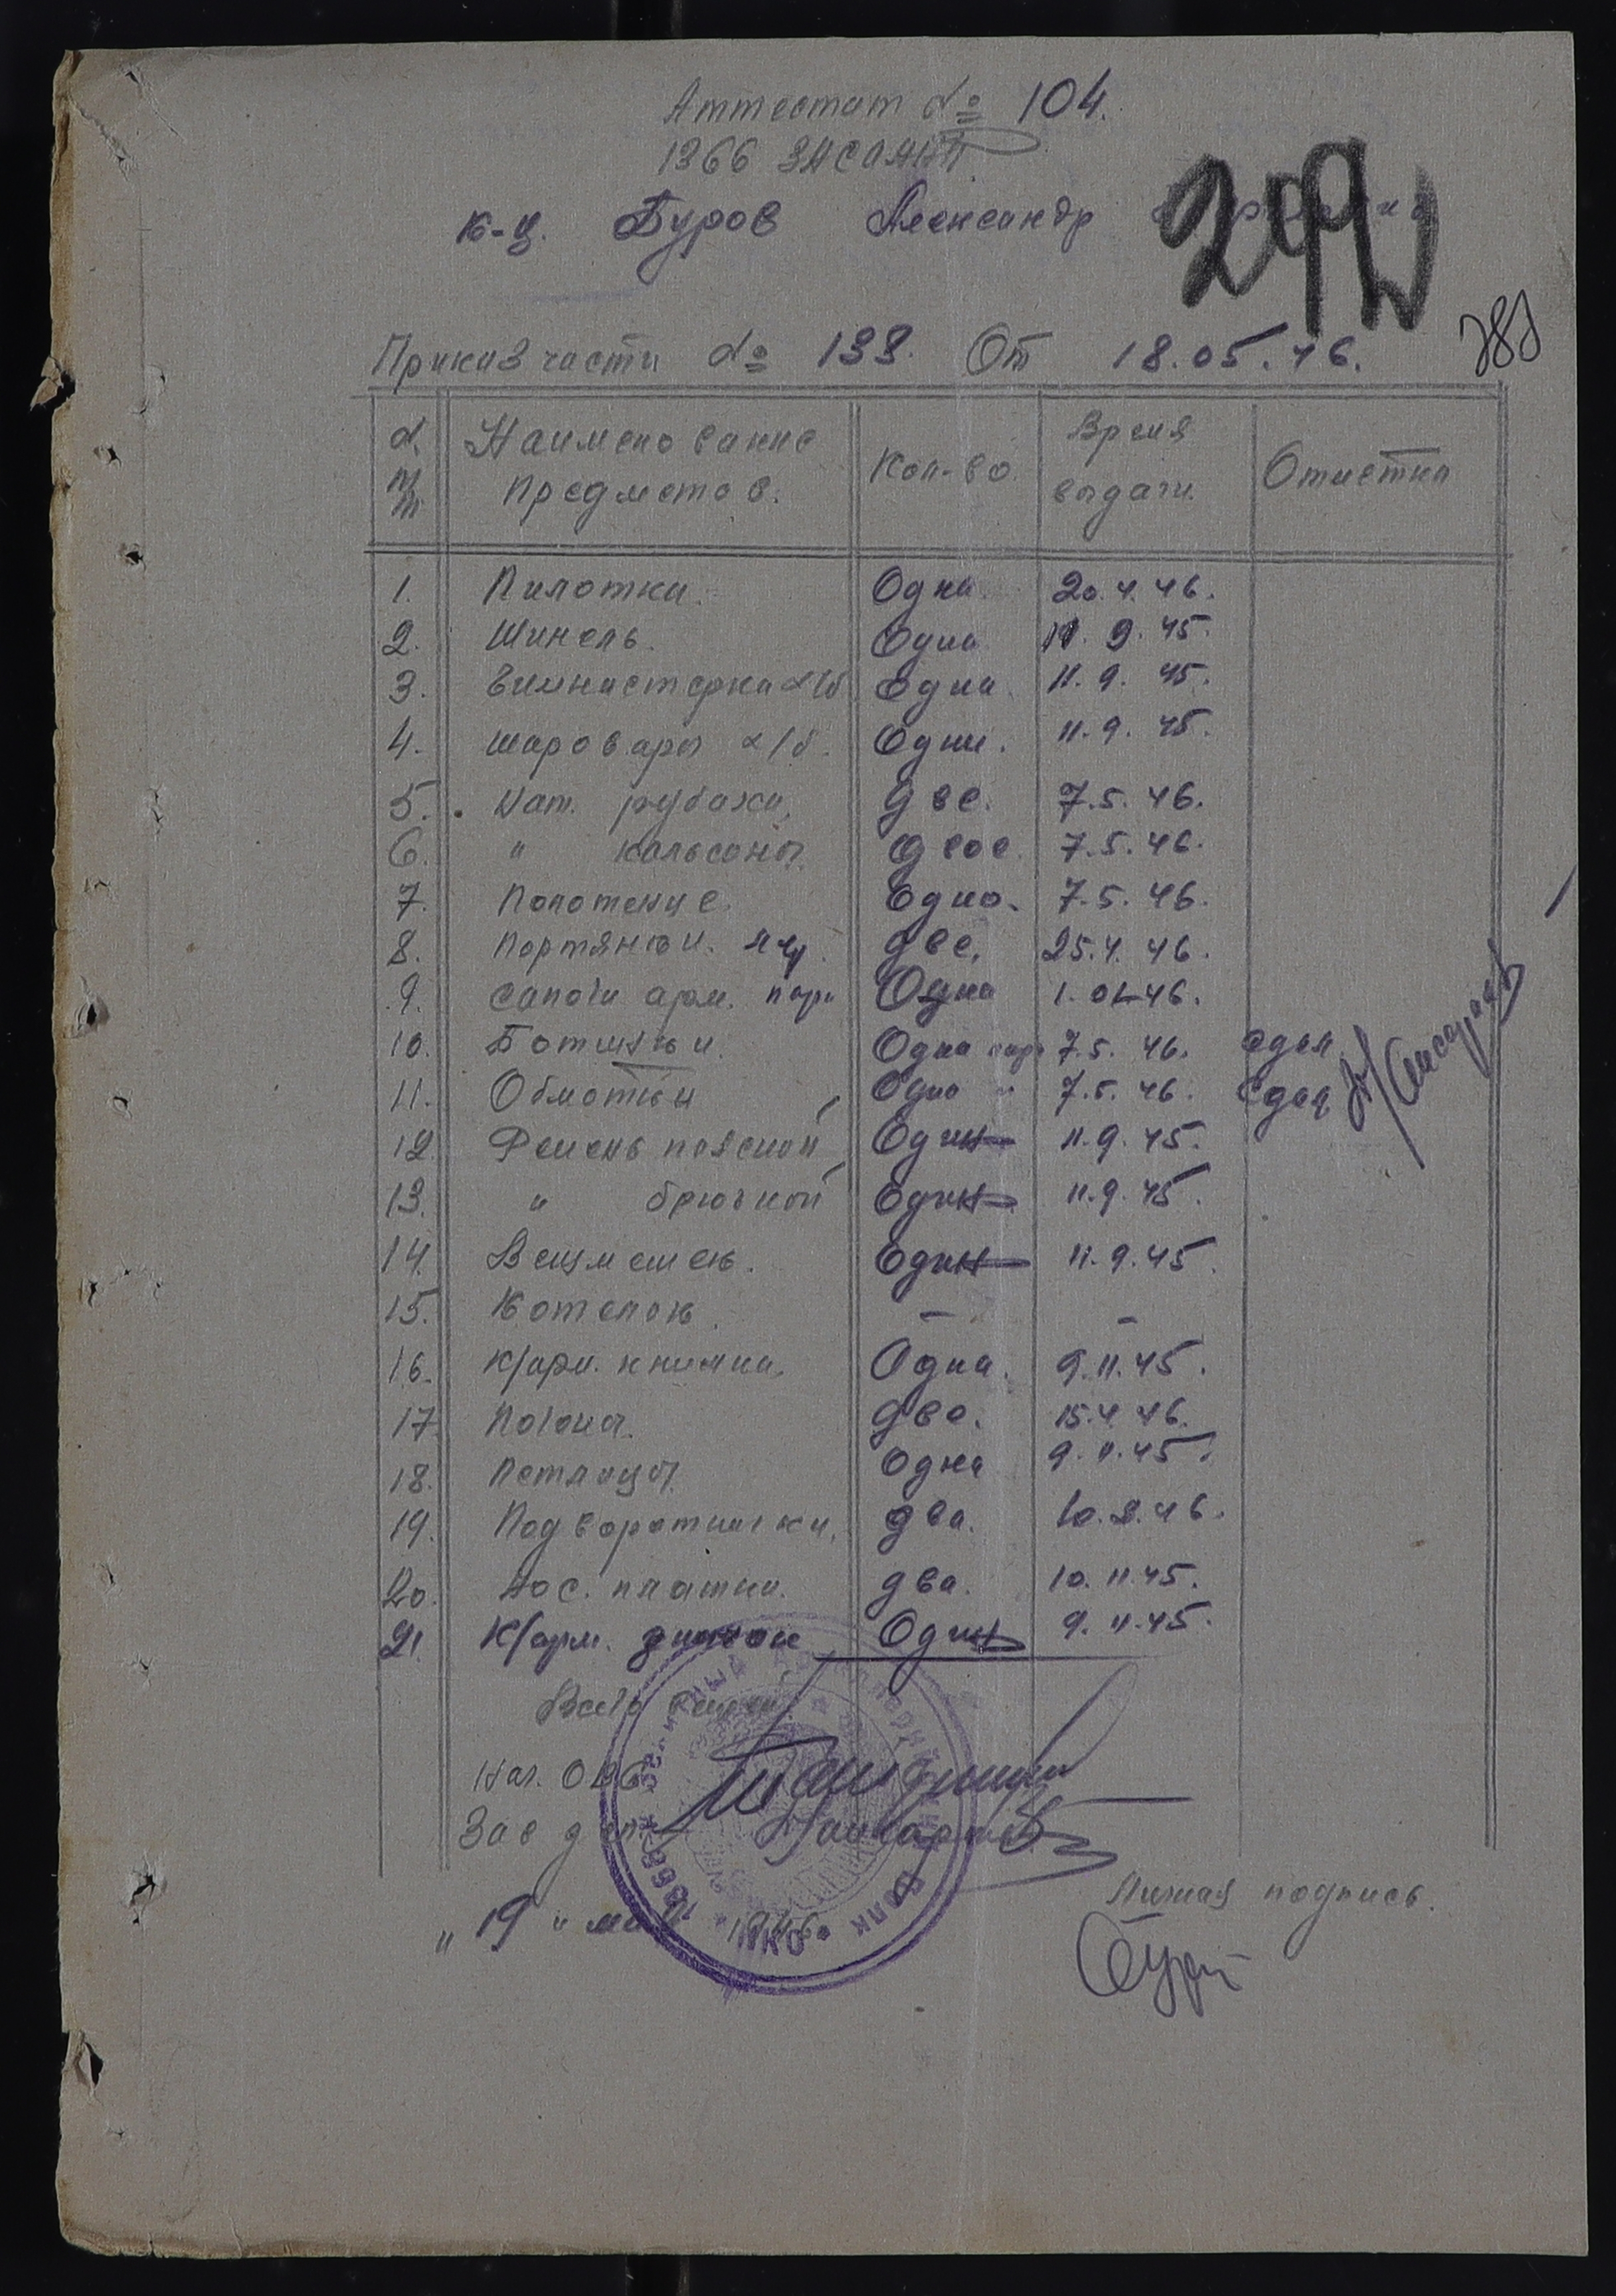 Аттестат № 104.
1366 ЗНСОАКП
к-ц. Буров Александр
292
Приказ части № 133. От 18.05.46.
№ п/п Наименование Предметов. Кол-во. Время выдачи. Отметка
1. Пилотка. Одна 20.4.46.
2. Шинель. Одна 11.9.45.
3. Гимнастерка х/б Одна 11.9.45.
4. Шаровары х/б. Одни. 11.9.45.
5. Нат. рубахи, Две. 7.5.46.
6. " кальсоны. двое. 7.5.46.
7. Полотенце. Одно. 7.5.46.
8. Портянки. две. 25.4.46.
9. Сапоги арм. пара Одна 1.01.46.
10. Ботинки. Одна пара 7.5.46. сдал
11. Обмотки Одна " 7.5.46. сдал
12. Ремень поясной Один 11.9.45.
13. " брючной Один 11.9.45.
14. Вещмешок. Один 11.9.45.
15. Котелок. – –
16. К/арм. книжка. Одна. 9.11.45.
17. Погоны. два. 15.4.46.
18. Петлицы. Одна 9.11.45.
19. Подворотнички, два. 10.2.46.
20. Нос. платки. два. 10.11.45.
21. К/арм. Один 9.11.45.
Всего
Нач. ОВС
Зав дел
Личная подпись.
"19" мая 1946
Буров